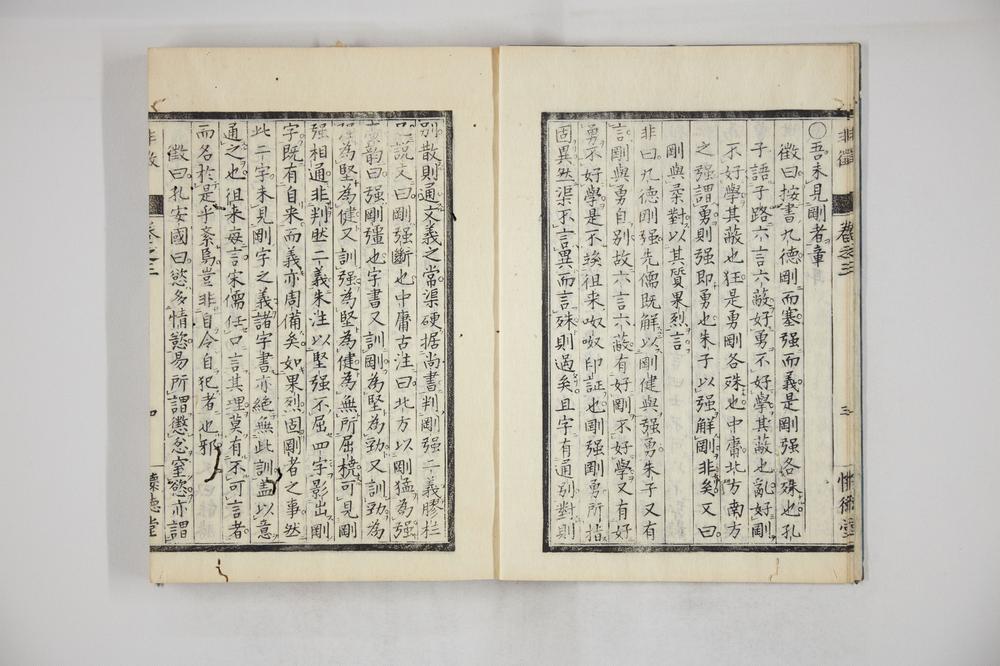 〇吾未見剛者章
徴曰按書九德剛而塞强而義是剛强各殊也孔
子語子路六言六蔽好勇不好學其蔽也亂好剛
不好學其蔽也狂是勇剛各殊也中庸北方南方
之强謂勇則强即勇也朱子以强解剛非矣又曰
剛與柔對以其質果烈言
非曰九德剛强先儒既解以剛健與强勇朱子又有
言剛與勇自別故六言六蔽有好剛不好學又有好
勇不好學是不俟徂來呶呶印証也剛强剛勇所指
固異然渠不言異而言殊則過矣且字有通別對則
別散則通文義之常渠硬据尚書判剛强二義膠柱
說文曰剛强斷也中庸古注曰北方以剛猛為强
韵曰强剛彊也字書又訓剛為堅為勁又訓勁為
為堅為健又訓强為堅為健為無所屈橈可見剛
强相通非判然二義朱注以堅强不屈四字影出剛
字既有自来而義亦周備矣如果烈固剛者之事然
此二字未見剛字之義諸字書亦絕無此訓盖以意
通之也徂来每言宋儒任口言其理莫有不可言者
而名於是乎紊焉豈非自令自犯者也邪
徴曰孔安國曰慾多情慾易所謂懲忿窒慾亦謂
非徴
卷之三
三
懷德堂
非徴
卷之三
四
懷德堂